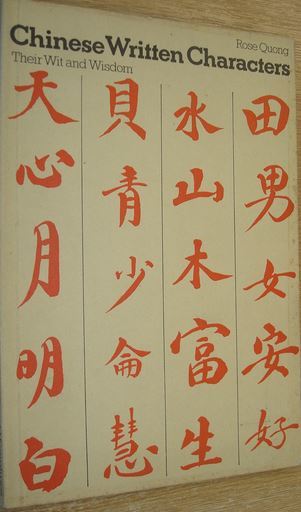 Chinese Written Characters
Rose Quong
Their Wit and Wisdom
田男女安好
水山木富生
貝青少侖慧
天心月明白